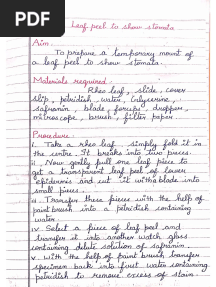 PDF
Leaf peel to show stomata
Aim -
To prepare a temporary mount of
a leaf peel to show stomata.
Materials required -
Rheo leaf, slide, cover
slip, petridish, water, Glycerine,
safranin, blade, forceps, dropper,
microscope, brush, filter paper
Procedure -
i. Take a rheo leaf simply fold it in
the centre. It breaks into two pieces.
Now gently pull one leaf piece to
get a transparent leaf peel of lower
epidermis and cut it with a blade into
small pieces.
Transfer these pieces with the help of
paint brush into a petridish containing
water.
iv Select a piece of leaf peel and
transfer it into another watch glass
containing dilute solution of safranin.
v. With the help of paint brush transfer
specimen back into first water containing
petridish to remove excess of stain.